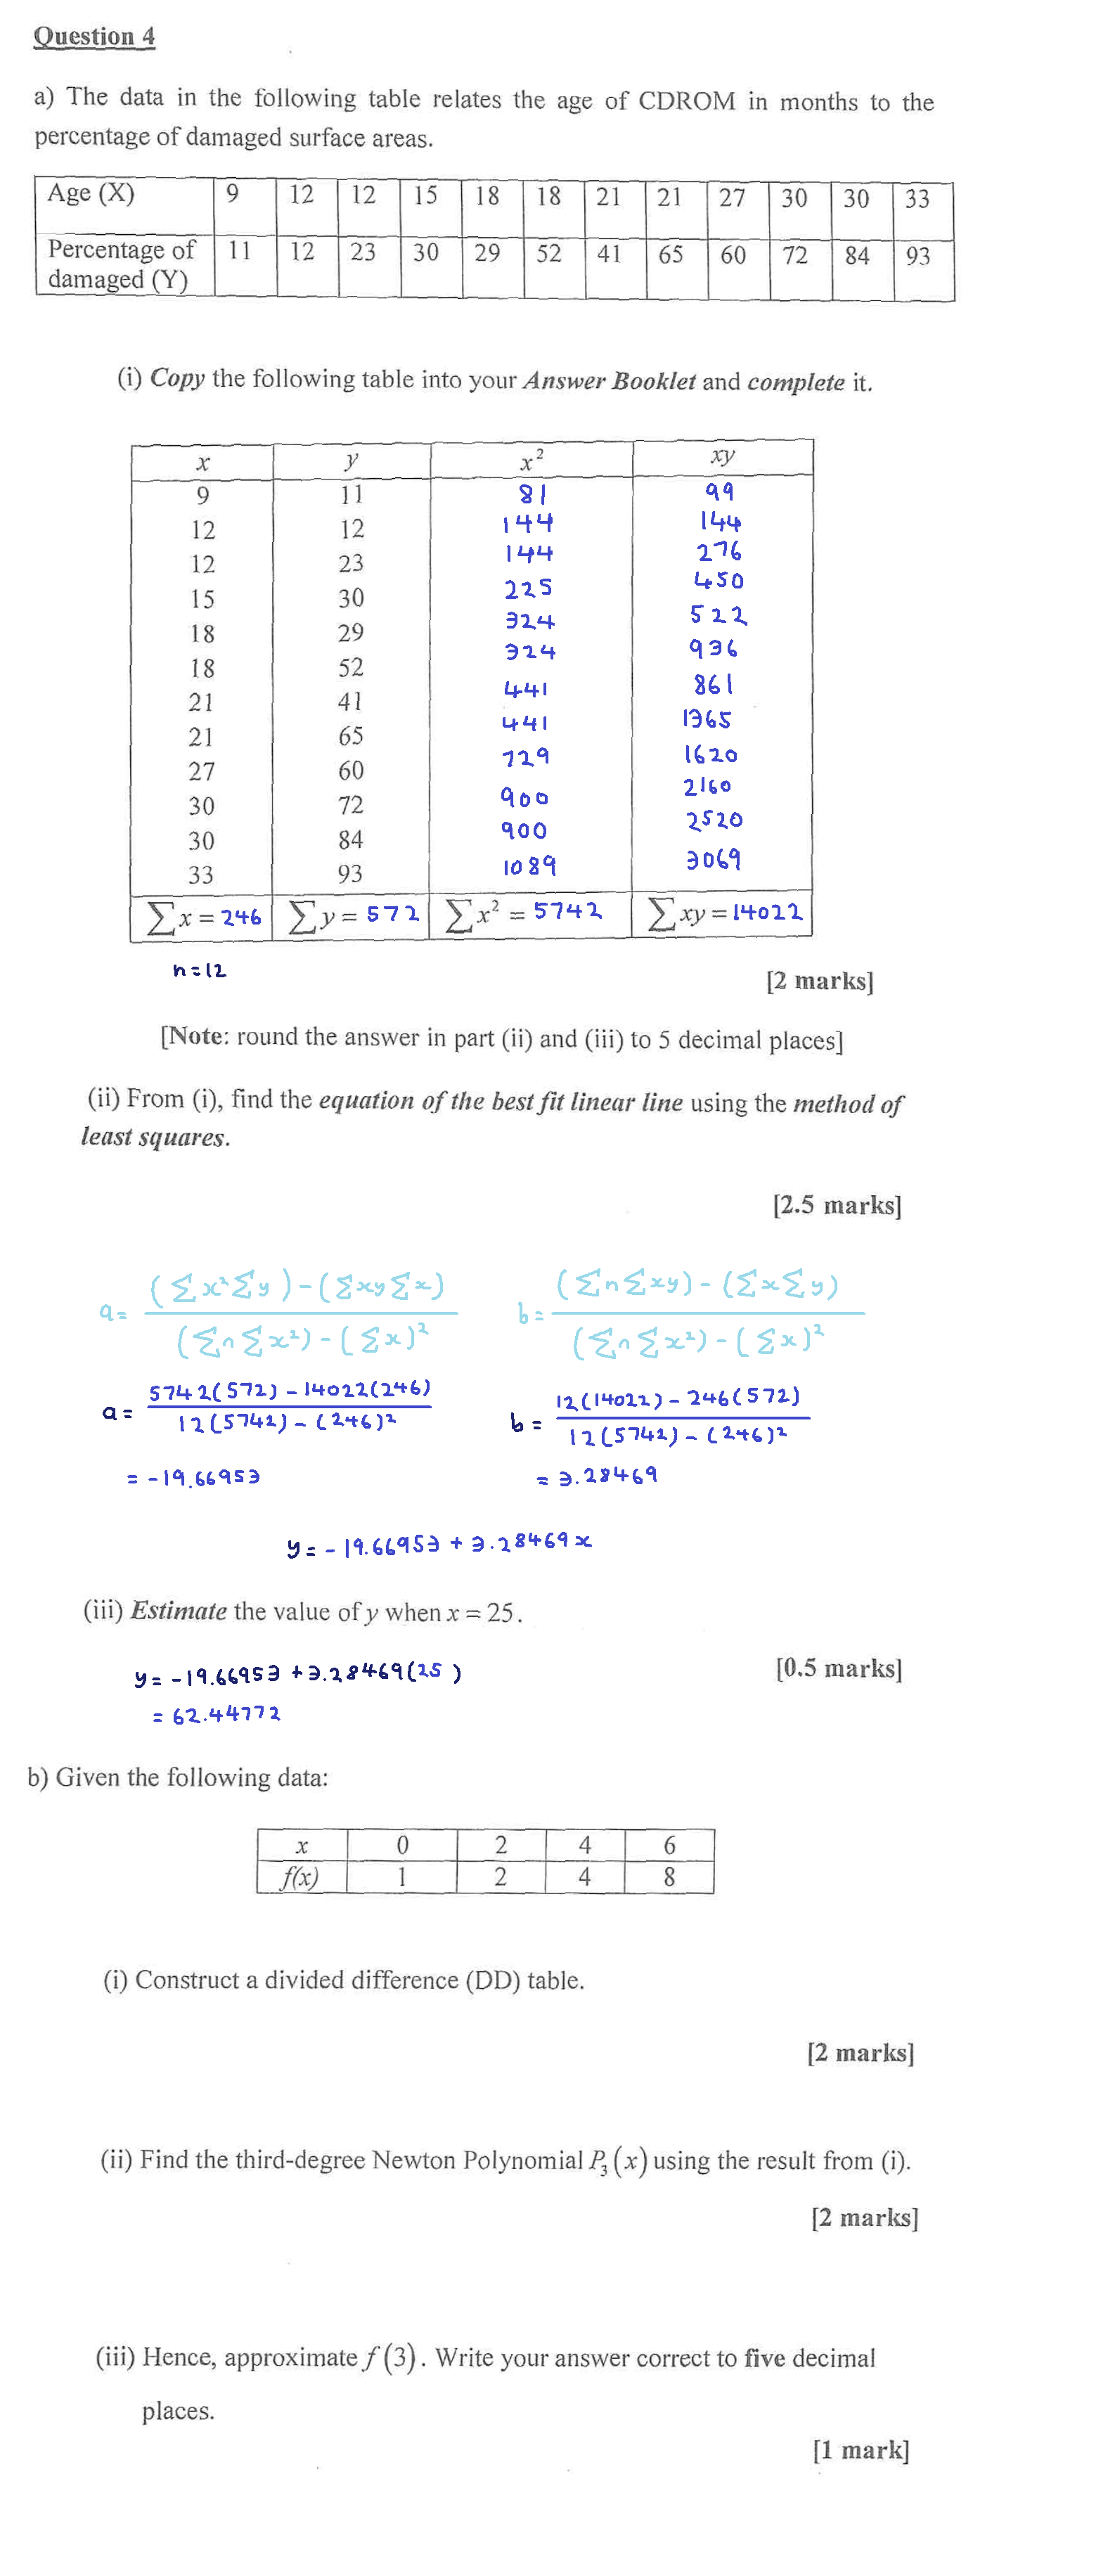 Question 4
a) The data in the following table relates the age of CDROM in months to the
percentage of damaged surface areas.
Age (X) 9 12 12 15 18 18 21 21 27 30 30 33
Percentage of damaged (Y) 11 12 23 30 29 52 41 65 60 72 84 93
(i) Copy the following table into your Answer Booklet and complete it.
x y x² xy
9 11 81 99
12 12 144 144
12 23 144 276
15 30 225 450
18 29 324 522
18 52 324 936
21 41 441 861
21 65 441 1365
27 60 729 1620
30 72 900 2160
30 84 900 2520
33 93 1089 3069
∑x = 246 ∑y = 572 ∑x² = 5742 ∑xy = 14022
n=12
[2 marks]
[Note: round the answer in part (ii) and (iii) to 5 decimal places]
(ii) From (i), find the equation of the best fit linear line using the method of
least squares.
[2.5 marks]
a= (∑x²∑y)-(∑xy∑x) / (∑n∑x²)-(∑x)² b= (∑n∑xy)-(∑x∑y) / (∑n∑x²)-(∑x)²
a= 5742(572)-14022(246) / 12(5742)-(246)² b= 12(14022)-246(572) / 12(5742)-(246)²
= -19.66953 = 3.28469
y= -19.66953 + 3.28469x
(iii) Estimate the value of y when x = 25.
y= -19.66953 +3.28469(25)
[0.5 marks]
= 62.44772
b) Given the following data:
x 0 2 4 6
f(x) 1 2 4 8
(i) Construct a divided difference (DD) table.
[2 marks]
(ii) Find the third-degree Newton Polynomial P₃(x) using the result from (i).
[2 marks]
(iii) Hence, approximate f(3). Write your answer correct to five decimal
places.
[1 mark]